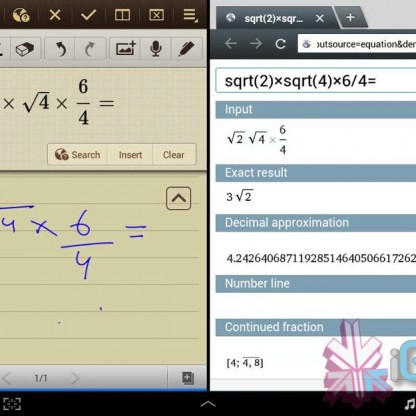 × √4 × 6/4 =
Search Insert Clear
4 × 6/4 =
1/1
sqrt(2)×sqr...
outsource=equation&de
sqrt(2)×sqrt(4)×6/4=
Input
√2 √4 × 6/4
Exact result
3√2
Decimal approximation
4.2426406871192851464050661726
Number line
Continued fraction
[4; 4, 8]